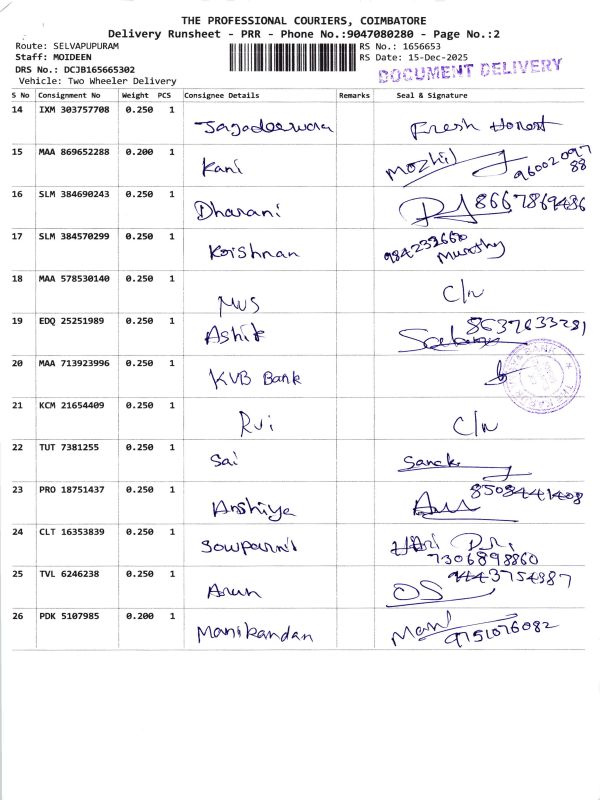 THE PROFESSIONAL COURIERS, COIMBATORE
Delivery Runsheet - PRR - Phone No.:9047080280 - Page No.:2
Route: SELVAPUPURAM
RS No.: 1656653
Staff: MOIDEEN
RS Date: 15-Dec-2025
DRS No.: DCJB165665302
DOCUMENT DELIVERY
Vehicle: Two Wheeler Delivery
S No Consignment No Weight PCS Consignee Details Remarks Seal & Signature
14 IXM 303757708 0.250 1 Jagadeeswara Fresh Honest
15 MAA 869652288 0.200 1 Kani Mozhil 96002 097 88
16 SLM 384690243 0.250 1 Dharani 8667869486
17 SLM 384570299 0.250 1 Krishnan 984232660 Murthy
18 MAA 578530140 0.250 1 MVS C/n
19 EDQ 25251989 0.250 1 Ashik 8637633281
20 MAA 713923996 0.250 1 KVB Bank
21 KCM 21654409 0.250 1 Rvi C/n
22 TUT 7381255 0.250 1 Sai
23 PRO 18751437 0.250 1 Anshiya 8508441408
24 CLT 16353839 0.250 1 Sowparni 7306898860
25 TVL 6246238 0.250 1 Arun 9443754387
26 PDK 5107985 0.200 1 Manikandan Mani 9751076082